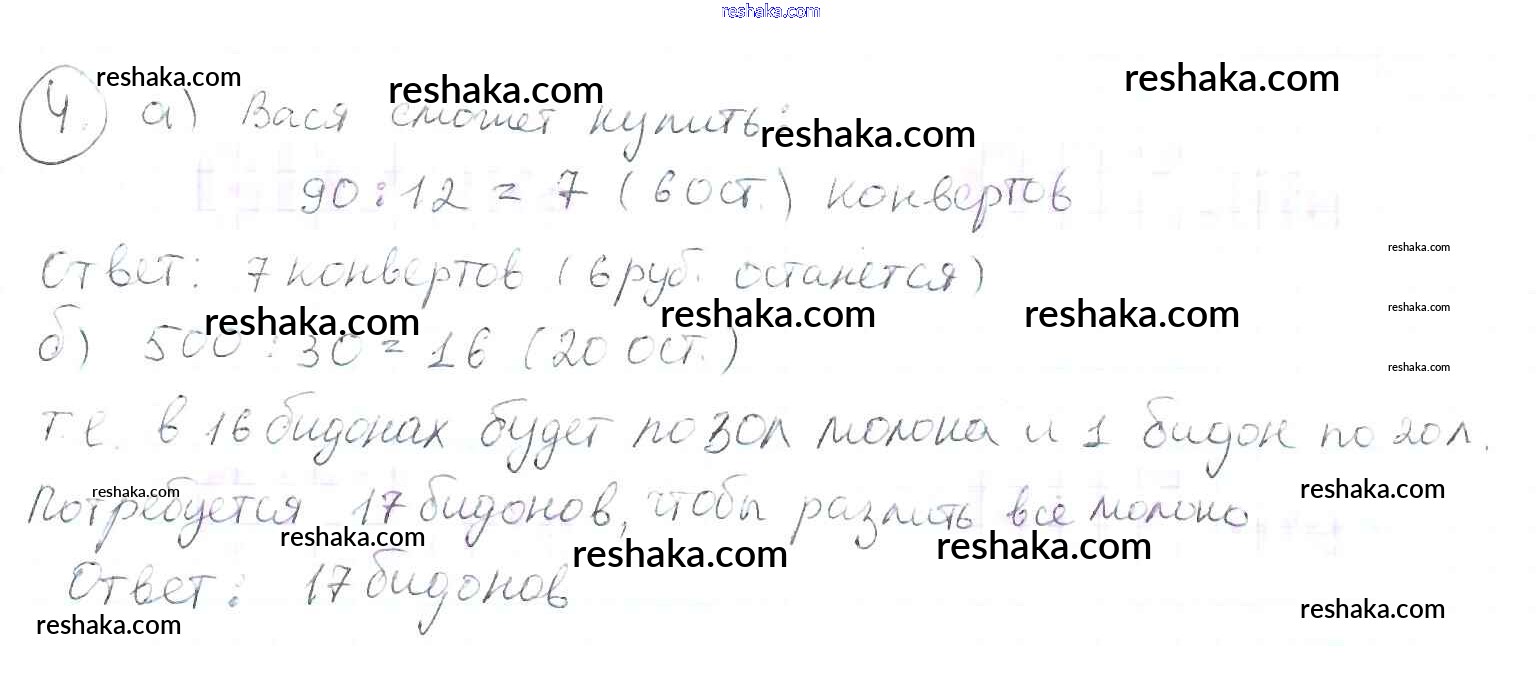 reshaka.com
reshaka.com reshaka.com reshaka.com
4. а) Вася сможет купить:
reshaka.com
90 : 12 = 7 (6 ост.) конвертов
reshaka.com
Ответ: 7 конвертов (6 руб. останется)
reshaka.com reshaka.com reshaka.com reshaka.com
б) 500 : 30 = 16 (20 ост.)
reshaka.com
т.е. в 16 бидонах будет по 30л молока и 1 бидон по 20л.
reshaka.com reshaka.com
Потребуется 17 бидонов, чтобы разлить всё молоко
reshaka.com reshaka.com reshaka.com
Ответ: 17 бидонов
reshaka.com reshaka.com